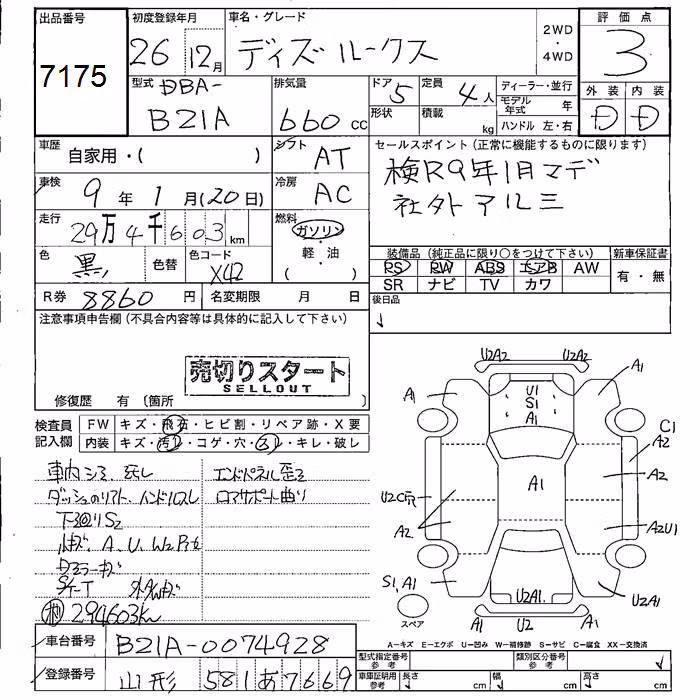 出品番号 初度登録年月 車名・グレード 2WD ・ 4WD 評価点
7175 26 12月 ディズルークス 3
型式 DBA- 排気量 ドア 5 定員 4人 ディーラー・並行 外装 内装
B21A 660 CC 形状 積載 kg モデル年式 年 D D
ハンドル 左・右
車歴 自家用・( ) シフト AT セールスポイント (正常に機能するものに限ります)
車検 9年1月(20日) 冷房 AC 検R9年1月マデ
走行 29万4千603km 燃料 ガソリン・軽油 ( ) 社外アルミ
色 黒 色替 色コード X42 装備品 (純正品に限り○をつけて下さい) 新車保証書
PS PW ABS エアB AW 有・無
SR ナビ TV カワ
R券 8860円 名変期限 月 日 後日品
注意事項申告欄 (不具合内容等は具体的に記入して下さい)
売切りスタート
SELLOUT
修復歴 有 (箇所 )
検査員記入欄 FW キズ・飛石・ヒビ割・リペア跡・X要
内装 キズ・汚レ・コゲ・穴・スレ・キレ・破レ
車内シミ、灰し エンドパネル歪ミ
ダッシュのリアト、ハンドルスレ コアサポート曲り
下廻りS2
A、U、W2
294603km
U2A2 U2A2
A1 A1
U1
S1
A1
C1
A2
A1 A2
U2
A2 A2U1
S1,A1 U2A1 U2A1
A1 U2 A1
スペア
A=キズ E=エクボ U=凹み W=補修跡 S=サビ C=腐食 XX=交換済
車台番号 B21A-0074928 型式指定番号 参考 類別区分番号 参考
登録番号 山形 581 あ 7669 車庫証明用 参考 長さ cm 幅 cm 高さ cm